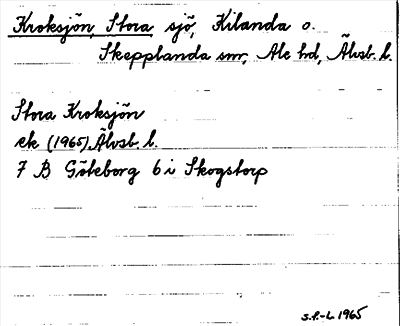 Kroksjön, Stora sjö, Kilanda o.
Skepplanda snr, Ale hd, Älvsb. l.
Stora Kroksjön
ek (1965) Älvsb. l.
7 B Göteborg 6 i Skogstorp
S.F.-L 1965